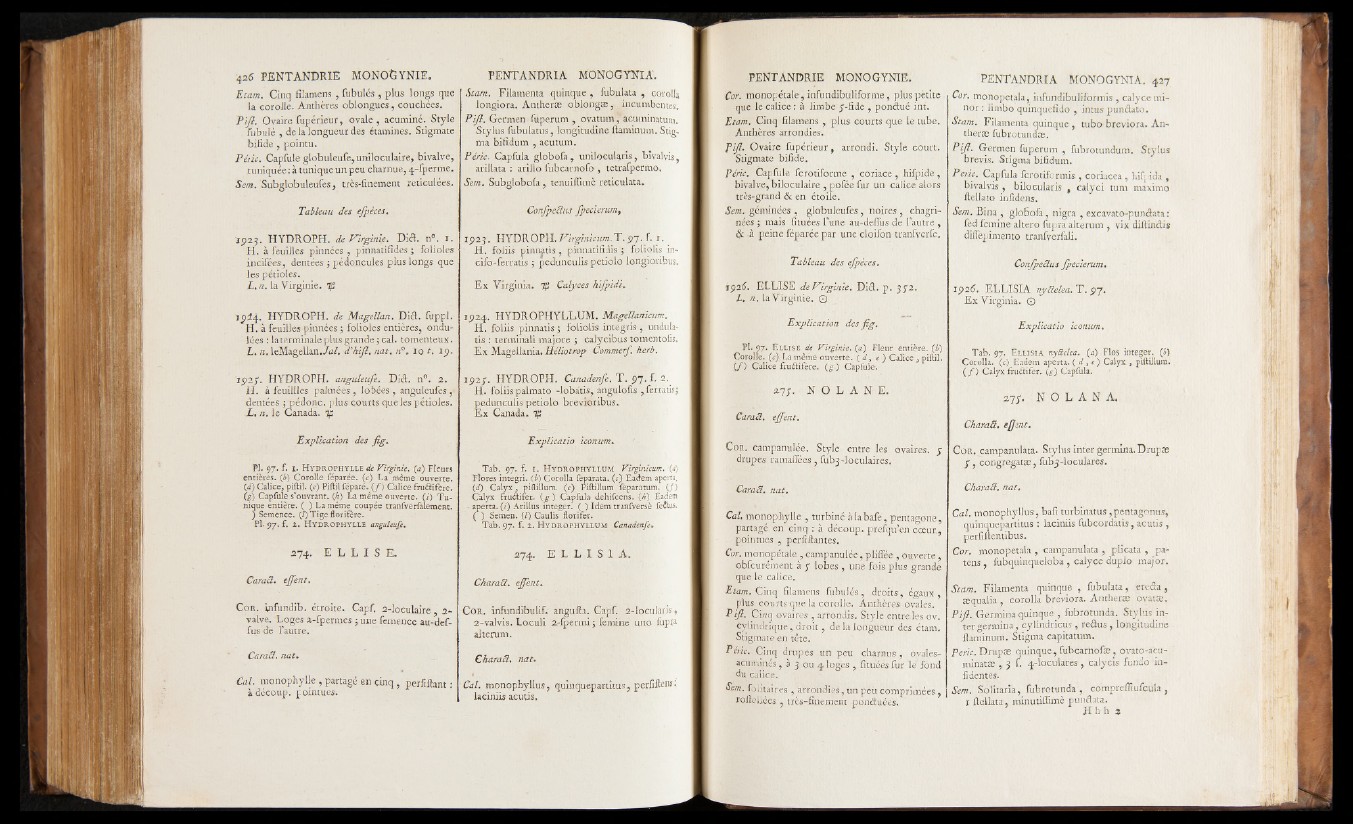 426 PENTANDRIE MONOGYNIE.
Etam. Cinq filamens , ſubulés , plus longs que
la corolle. Anthères oblongues, couchées.
Piſt. Ovaire ſupérieur, ovale , acuminé. Style
ſubulé , de la longueur des étamines. Stigmate
bifide , pointu.
Péric. Capſule globuleuſe, uniloculaire, bivalve,
tuniquée : à tunique un peu charnue, 4-ſperme.
Sem. Subglobuleuſes, très-finement reticulées.
Tableau des eſpèces.
1923. HYDROPH. de Virginie. Dict. n°. 1.
H. à feuilles pinnées , pinnatifides ; folioles
inciſées, dentées ; pédoncules plus longs que
les pétioles.
L. n. la Virginie. ♃
1924. HYDROPH. de Magellan. Dict. ſuppl.
H. à feuilles pinnées ; folioles entières, ondu-
lées : la terminale plus grande ; cal. tomenteux.
L. n. le Magellan. Jul. d'hiſt. nat. n°. 19 t. 19.
1925. HYDROPH. anguleuſe. Dict. n°. 2.
H. à feuilles palmées, lobées , anguleuſes,
dentées ; pédonc. plus courts que les pétioles.
L. n. le Canada. ♃
Explication des fig.
Pl. 97. f. 1. HYDROPHYLLE de Virginie. (a) Fleurs
entières. (b) Corolle ſéparée. (c) La même ouverte.
(d) Calice, piſtil. (e) Piſtil ſéparé. (f) Calice fructifère.
(g) Capſule s'ouvrant. (h) La même ouverte. (i) Tu-
nique entière. ( ) La même coupée tranſverſalement.
) Semence. (l) Tige florifère.
Pl. 97. f. 2. HYDROPHYLLE anguleuſe.
274. ELLISE.
Caract. eſſent.
COR. infundib. étroite. Capſ. 2-loculaire, 2-
valve. Loges 2-ſpermes ; une ſemence au-deſ-
ſus de l'autre.
Caract. nat.
Cal. monophylle , partagé en cinq, perſiſtant :
à découp. pointues.
PENTANDRIA MONOGYNIA.
Stam. Filamenta quinque , ſubulata , corolla
longiora. Antheræ oblongæ, incumbentes.
Piſt. Germen ſuperum , ovatum, acuminatum.
Stylus ſubulatus, longitudine ſtaminum. Stig-
ma bifidum , acutum.
Péric. Capſula globoſa, unilocularis, bivalvis,
arillata : arillo ſubcarnoſo , tetraſpermo.
Sem. Subgloboſa, tenuiſſimè reticulata.
Conſpectus ſpecierum,
1923. HYDROPH. Virginicum. T. 97. f. 1.
H. foliis pinnatis, pinnatifidis ; foliolis in-
ciſo-ſerratis ; pedunculis petiolo longioribus.
Ex Virginia. ♃ Calyces hiſpidi.
1924. HYDROPHYLLUM. Magellanicum.
H. foliis pinnatis ; foliolis integris , undula-
tis : terminali majore ; calycibus tomentoſis.
Ex Magellania. Héliotrop Commerſ. herb.
1925. HYDROPH. Canadenſe. T. 97. f. 2.
H. foliis palmato-lobatis, anguloſis, ſerratis;
pedunculis petiolo brevioribus.
Ex Canada. ♃
Explicatio iconum.
Tab. 97. f. 1. HYDROPHYLLUM Virginicum. (a)
Flores integri. (b) Corolla ſeparata. (c) Eadem aperta.
(d) Calyx , piſtillum. (e) Piſtillum ſeparatum. (f)
Calyx fructifer. (g) Capſula dehiſcens. (h) Eadem
aperta. (i) Arillus integer. ( ) Idem tranſverſè ſectus.
( ) Semen. (l) Caulis florifer.
Tab. 97. f. 2. HYDROPHYLLUM Canadenſe.
274. ELLISIA.
Charact. eſſent.
COR. infundibulif. anguſta. Capſ. 2-locularis,
2-valvis. Loculi 2-ſpermi ; ſemine uno ſupra
alterum.
Charact. nat.
Cal. monophyllus, quinquepartitus, perſiſtens :
laciniis acutis.
PENTANDRIE MONOGYNIE.
Cor. monopétale, infundibuliforme , plus petite
que le calice : à limbe 5-fide , ponctué int.
Etam. Cinq filamens , plus courts que le tube.
Anthères arrondies.
Piſt. Ovaire ſupérieur, arrondi. Style court.
Stigmate bifide.
Péric. Capſule ſcrotiforme , coriace , hiſpide,
bivalve, biloculaire , poſée ſur un calice alors
très-grand & en étoile.
Sem. géminées , globuleuſes, noires, chagri-
nées ; mais ſituées l'une au-deſſus de l'autre,
& à peine ſéparée par une cloiſon tranſverſe.
Tableau des eſpèces.
1926. ELLISE de Virginie. Dict. p. 352.
L. n. la Virginie. ☉
Explication des fig.
Pl. 97. ELLISE de Virginie. (a) Fleur entière. (b)
Corolle. (c) La même ouverte. ( d, e ) Calice , piſtil.
(f) Calice fructifère. (g) Capſule.
275. NOLANE.
Caract. eſſent.
COR. campanulée. Style entre les ovaires. 5
drupes ramaſſées, ſub3-loculaires.
Caract. nat.
Cal. monophylle , turbiné à la baſe, pentagone,
partagé en cinq : à découp. preſqu'en cœur,
pointues , perſiſtantes.
Cor. monopétale , campanulée, pliſſée , ouverte,
obſcurément à 5 lobes, une fois plus grande
que le calice.
Etam. Cinq filamens ſubulés, droits, égaux ,
plus courts que la corolle. Anthères ovales.
Piſt. Cinq ovaires, arrondis. Style entre les ov.
cylindrique, droit, de la longueur des étam.
Stigmate en tête.
Péric. Cinq drupes un peu charnus, ovales-
acuminés, à 3 ou 4 loges , ſituées ſur le fond
du calice.
Sem. ſolitaires , arrondies, un peu comprimées,
roſtellées , très-finement ponctuées.
PENTANDRIA MONOGYNIA. 427
Cor. monopetala, infundibuliformis , calyce mi-
nor : limbo quinquefido , intus punctato.
Stam. Filamenta quinque , tubo breviora. An-
theræ ſubrotundæ.
Piſt. Germen ſuperum , ſubrotundum. Stylus
brevis. Stigma bifidum.
Peric. Capſula ſcrotiformis , coriacea , hiſpida ,
bivalvis , bilocularis , calyci tum maximo
ſtellato inſidens.
Sem. Bina , globoſa, nigra , excavato-punctata :
ſed ſemine altero ſupra alterum , vix diſtinctis
diſſepimento tranſverſali.
Conſpectus ſpecierum.
1926. ELLISIA nyctelea. T. 97.
Ex Virginia. ☉
Explicatio iconum.
Tab. 97. ELLISIA nyctelea. (a) Flos integer. (b)
Corolla. (c) Eadem aperta. ( d , e ) Calyx , piſtillum.
(f) Calyx fructifer. (g) Capſula.
275. NOLANA.
Charact. eſſent.
COR. campanulata. Stylus inter germina. Drupæ
5, congregatæ, ſub3-loculares.
Charact. nat.
Cal. monophyllus, baſi turbinatus, pentagonus,
quinquepartitus : laciniis ſubcordatis, acutis ,
perſiſtentibus.
Cor. monopetala , campanulata , plicata , pa-
tens , ſubquinqueloba, calyce duplo major.
Stam. Filamenta quinque , ſubulata , erecta,
æqualia , corolla breviora. Antheræ ovatæ.
Piſt. Germina quinque , ſubrotunda. Stylus in-
ter germina, cylindricus , rectus , longitudine
ſtaminum. Stigma capitatum.
Peric. Drupæ quinque, ſubcarnoſæ , ovato-acu-
minatæ , 3 ſ. 4-loculares , calycis fundo in-
ſidentes.
Sem. Solitaria, ſubrotunda , compreſſiuſcula ,
1 ſtellata, minutiſſimè punctata.
H h h 2